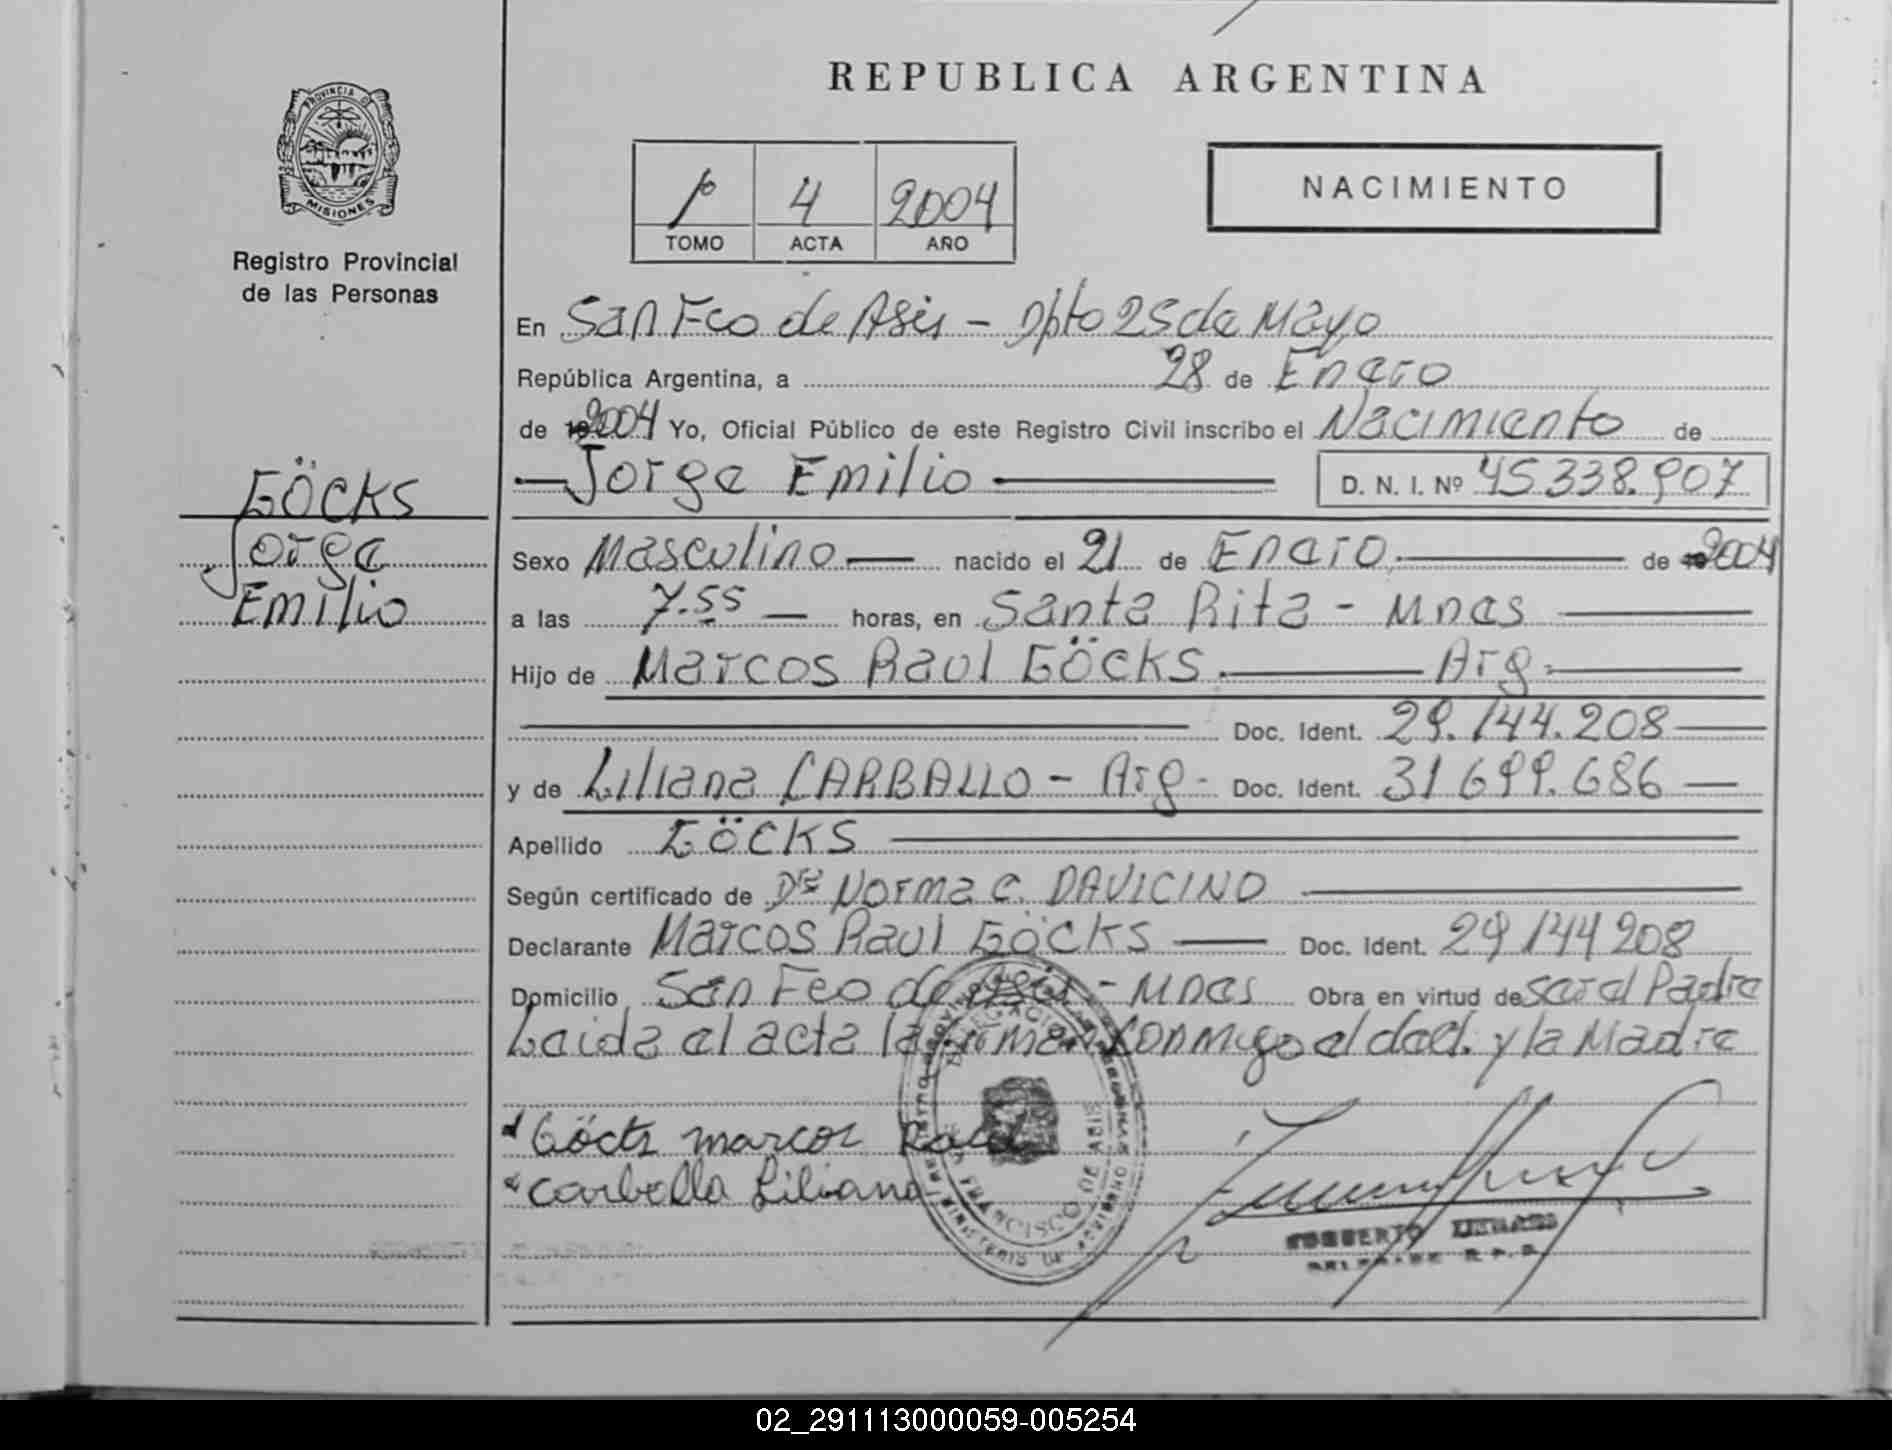 REPUBLICA ARGENTINA
PROVINCIA DE
MISIONES
Registro Provincial
de las Personas
1º 4 2004
TOMO ACTA AÑO
NACIMIENTO
En San Fco de Asis - Dpto 25 de Mayo
República Argentina, a 28 de Enero
de 2004 Yo, Oficial Público de este Registro Civil inscribo el Nacimiento de
Jorge Emilio D. N. I. Nº 45.338.907
GÖCKS
Jorge
Emilio
Sexo Masculino nacido el 21 de Enero de 2004
a las 7.55 horas, en Santa Rita - Mnes
Hijo de Marcos Raul GÖCKS Arg.
Doc. Ident. 29.144.208
y de Liliana CARBALLO - Arg - Doc. Ident. 31 699.686
Apellido GÖCKS
Según certificado de Dra Norma C. DAVICINO
Declarante Marcos Raul GÖCKS Doc. Ident. 29 144 208
Domicilio San Fco de Asis - Mnes Obra en virtud de ser el Padre
Leida el acta la firman conmigo el decl. y la Madre
Göcks marcos Raul
Carballo Liliana
SAN FRANCISCO DE ASIS
MINISTERIO DE GOBIERNO
02_291113000059-005254